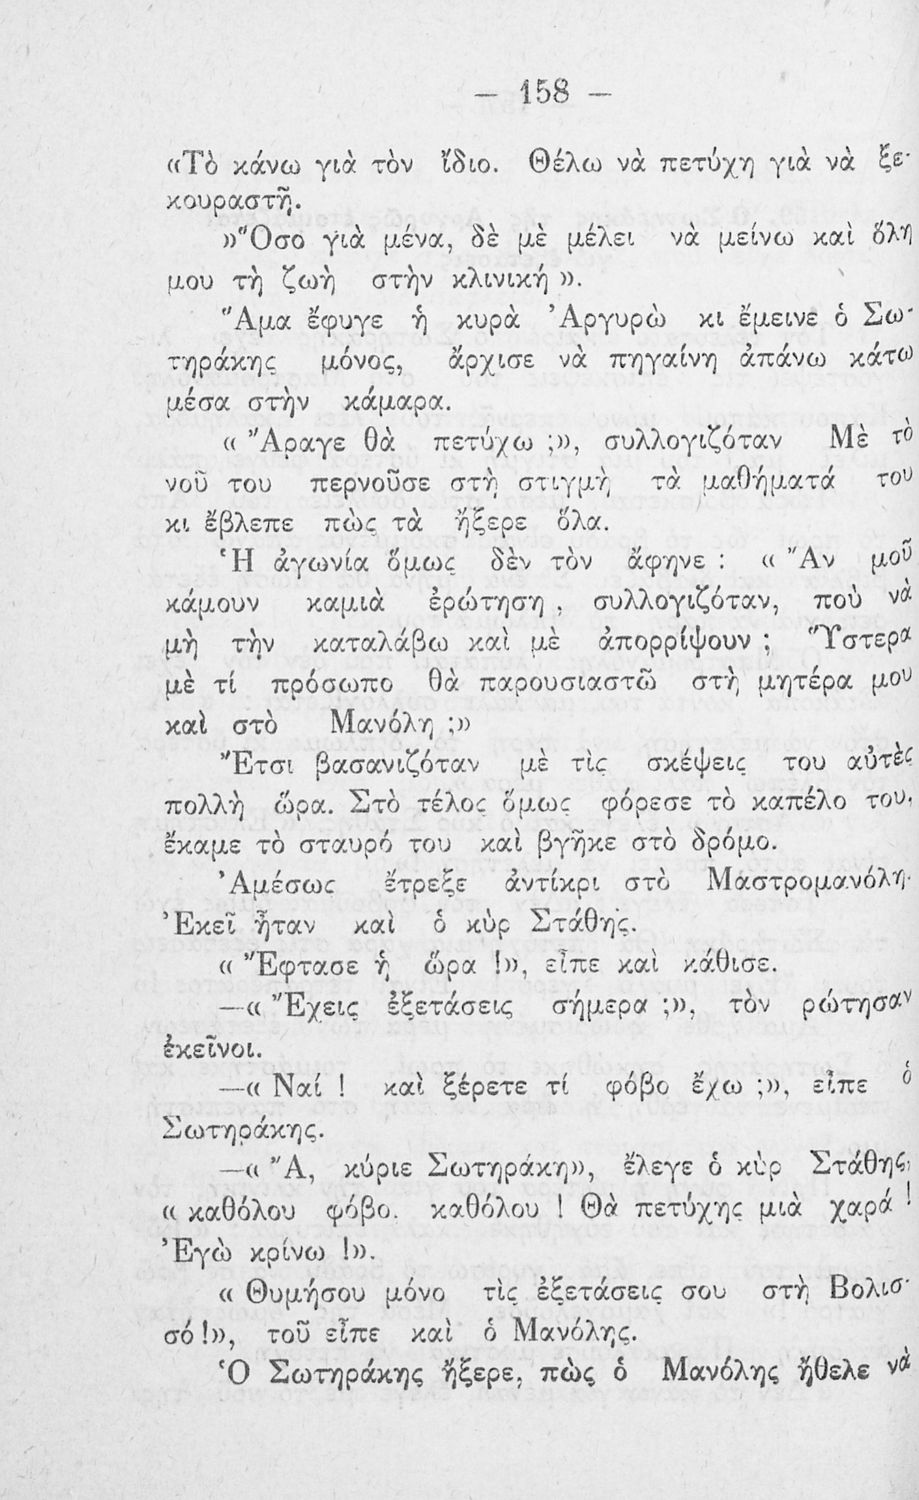 — 158 —
«Τὸ κάνω γιὰ τὸν ἴδιο. Θέλω νὰ πετύχη γιὰ νὰ ξε-
κουραστῆ.
»Ὅσο γιὰ μένα, δὲ μὲ μέλει νὰ μείνω καὶ ὅλη
μου τὴ ζωὴ στὴν κλινική ».
Ἅμα ἔφυγε ἡ κυρὰ Ἀργυρὼ κι ἔμεινε ὁ Σω-
τηράκης μόνος, ἄρχισε νὰ πηγαίνη ἀπάνω κάτω
μέσα στὴν κάμαρα.
« Ἄραγε θὰ πετύχω ;», συλλογιζόταν Μὲ τὸ
νοῦ του περνοῦσε στὴ στιγμὴ τὰ μαθήματά του
κι ἔβλεπε πὼς τὰ ἤξερε ὅλα.
Ἡ ἀγωνία ὅμως δὲν τὸν ἄφηνε : « Ἂν μοῦ
κάμουν καμιὰ ἐρώτηση , συλλογιζόταν, ποὺ νὰ
μὴ τὴν καταλάβω καὶ μὲ ἀπορρίψουν ; Ὕστερα
μὲ τί πρόσωπο θὰ παρουσιαστῶ στὴ μητέρα μου
καὶ στὸ Μανόλη ;»
Ἔτσι βασανιζόταν μὲ τὶς σκέψεις του αὐτὲς
πολλὴ ὥρα. Στὸ τέλος ὅμως φόρεσε τὸ καπέλο του,
ἔκαμε τὸ σταυρό του καὶ βγῆκε στὸ δρόμο.
Ἀμέσως ἔτρεξε ἀντίκρι στὸ Μαστρομανόλη.
Ἐκεῖ ἦταν καὶ ὁ κὺρ Στάθης.
« Ἔφτασε ἡ ὥρα !», εἶπε καὶ κάθισε.
—« Ἔχεις ἐξετάσεις σήμερα ;», τὸν ρώτησαν
ἐκεῖνοι.
—« Ναί ! καὶ ξέρετε τί φόβο ἔχω ;», εἶπε ὁ
Σωτηράκης.
—« Ἄ, κύριε Σωτηράκη», ἔλεγε ὁ κὺρ Στάθης,
« καθόλου φόβο. καθόλου ! Θὰ πετύχης μιὰ χαρά !
Ἐγὼ κρίνω !».
« Θυμήσου μόνο τὶς ἐξετάσεις σου στὴ Βολισ-
σό !», τοῦ εἶπε καὶ ὁ Μανόλης.
Ὁ Σωτηράκης ἤξερε, πὼς ὁ Μανόλης ἤθελε νὰ